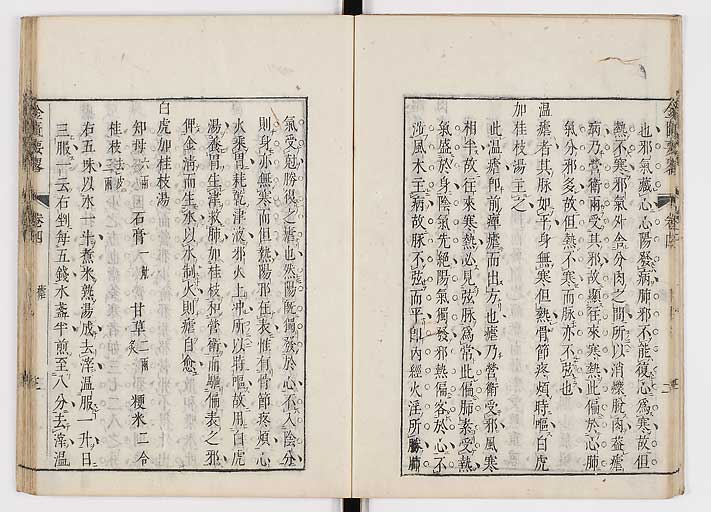 也邪氣藏心心陽發病肺邪不能復心為寒故但
熱不寒邪氣外舍分肉之間所以消爍脫肉葢瘧
病乃營衛兩受其邪故顯徃來寒熱此偏於心肺
氣分邪多故但熱不寒而脉亦不弦也
溫瘧者其脉如平身無寒但熱骨節疼煩時嘔白虎
加桂枝湯主之
此溫瘧即前癉瘧而出方也瘧乃營衛受邪風寒
相半故徃來寒熱必見弦脉為常此偏肺素受熱
氣盛於身陰氣先絕陽氣獨發邪熱偏客於心不
涉風木主病故脉不弦而平即內經火淫所勝肺
氣受尅勝復之瘧也然陽既獨發於心不入陰分
則身亦無寒而但熱陽邪在表惟有骨節疼煩心
火乘胃耗乾津液邪火上冲所以時嘔故用白虎
湯養胃生津救肺加桂枝和營衛而驅偏表之邪
俾金淸而生水以水制火則瘧自愈
白虎加桂枝湯
知母六兩 石膏一觔 甘草二兩炙 粳米二合
桂枝去皮三兩
右五味以水一斗煮米熟湯成去滓溫服一升日
三服一云右剉每五錢水盞半煎至八分去滓溫
金匱要畧 卷四 瘧